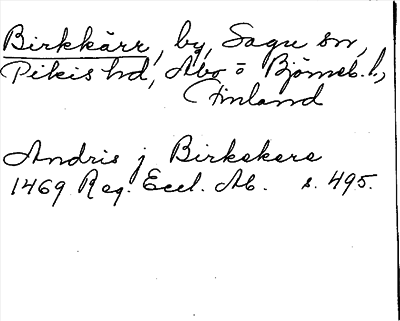 Birkkärr, by, Sagu sn,
Pikis hd, Åbo o Björneb. l.,
Finland
Andris j Birkekers
1469 Reg. Eccl. Ab. s. 495.